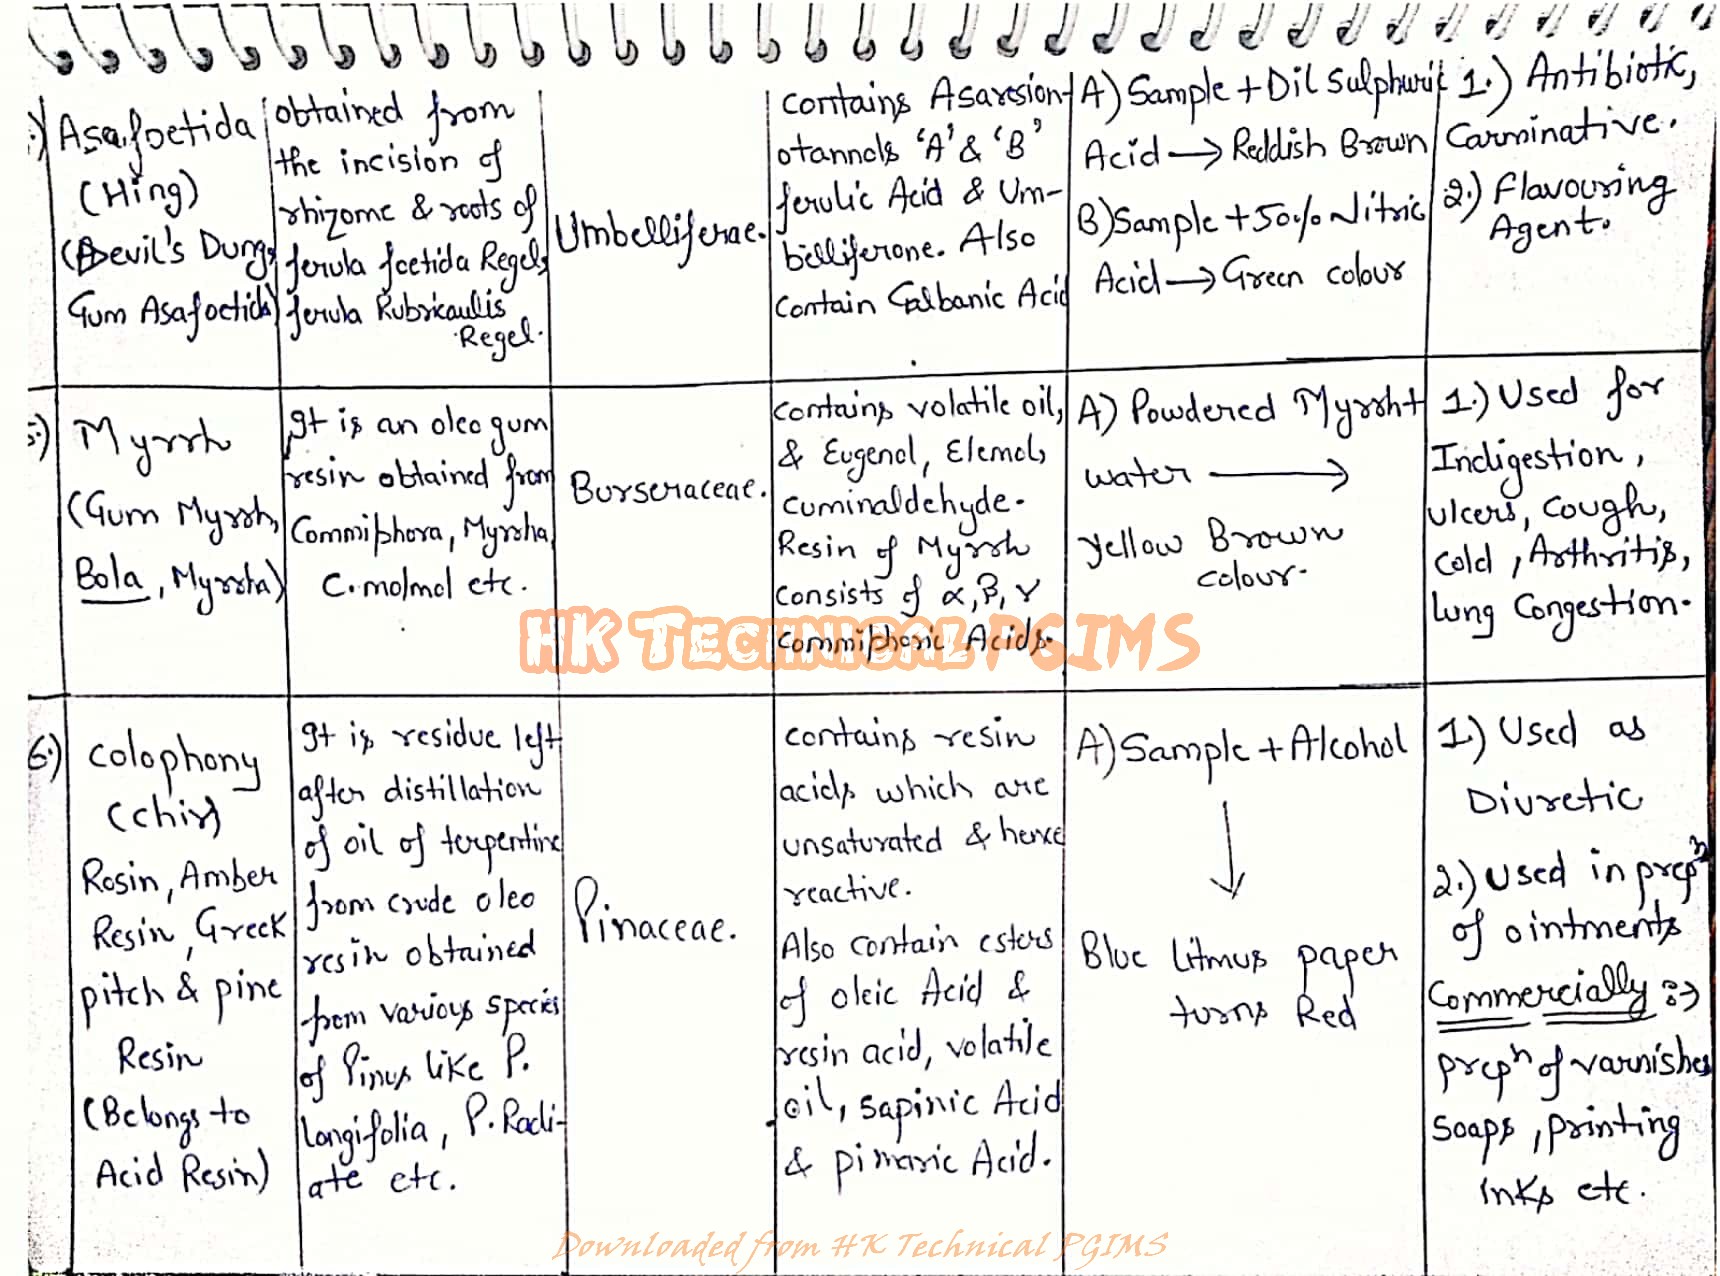 Asafoetida
(Hing)
(Devil's Dung,
Gum Asafoetida)
obtained from
the incision of
rhizome & roots of
ferula foetida Regel,
ferula Rubricaulis
Regel.
Umbelliferae.
contains Asaresion-
otannols 'A' & 'B'
ferulic Acid & Um-
belliferone. Also
Contain Galbanic Acid
A) Sample + Dil Sulphuric
Acid → Reddish Brown
B) Sample + 50% Nitric
Acid → Green colour
1.) Antibiotic,
Carminative.
2.) Flavouring
Agent.
5.) Myrrh
(Gum Myrrh,
Bola, Myrrha)
It is an oleo gum
resin obtained from
Commiphora, Myrrha,
C. molmol etc.
Burseraceae.
contains volatile oil,
& Eugenol, Elemol,
Cuminaldehyde.
Resin of Myrrh
consists of α, β, γ
Commiphoric Acids.
A) Powdered Myrrh +
water →
Yellow Brown
colour.
1.) Used for
Indigestion,
ulcers, Cough,
Cold, Arthritis,
lung Congestion.
HK Technical PGIMS
6.) Colophony
(chir)
Rosin, Amber
Resin, Greek
pitch & pine
Resin
(Belongs to
Acid Resin)
It is residue left
after distillation
of oil of terpentine
from crude oleo
resin obtained
from various species
of Pinus like P.
longifolia, P. Radi-
ate etc.
Pinaceae.
contains resin
acids which are
unsaturated & hence
reactive.
Also contain esters
of oleic Acid &
resin acid, volatile
oil, sapinic Acid
& pimaric Acid.
A) Sample + Alcohol
↓
Blue litmus paper
turns Red
1.) Used as
Diuretic
2.) Used in prepⁿ
of ointments
Commercially :→
prepⁿ of varnishes
soaps, printing
inks etc.
Downloaded from HK Technical PGIMS